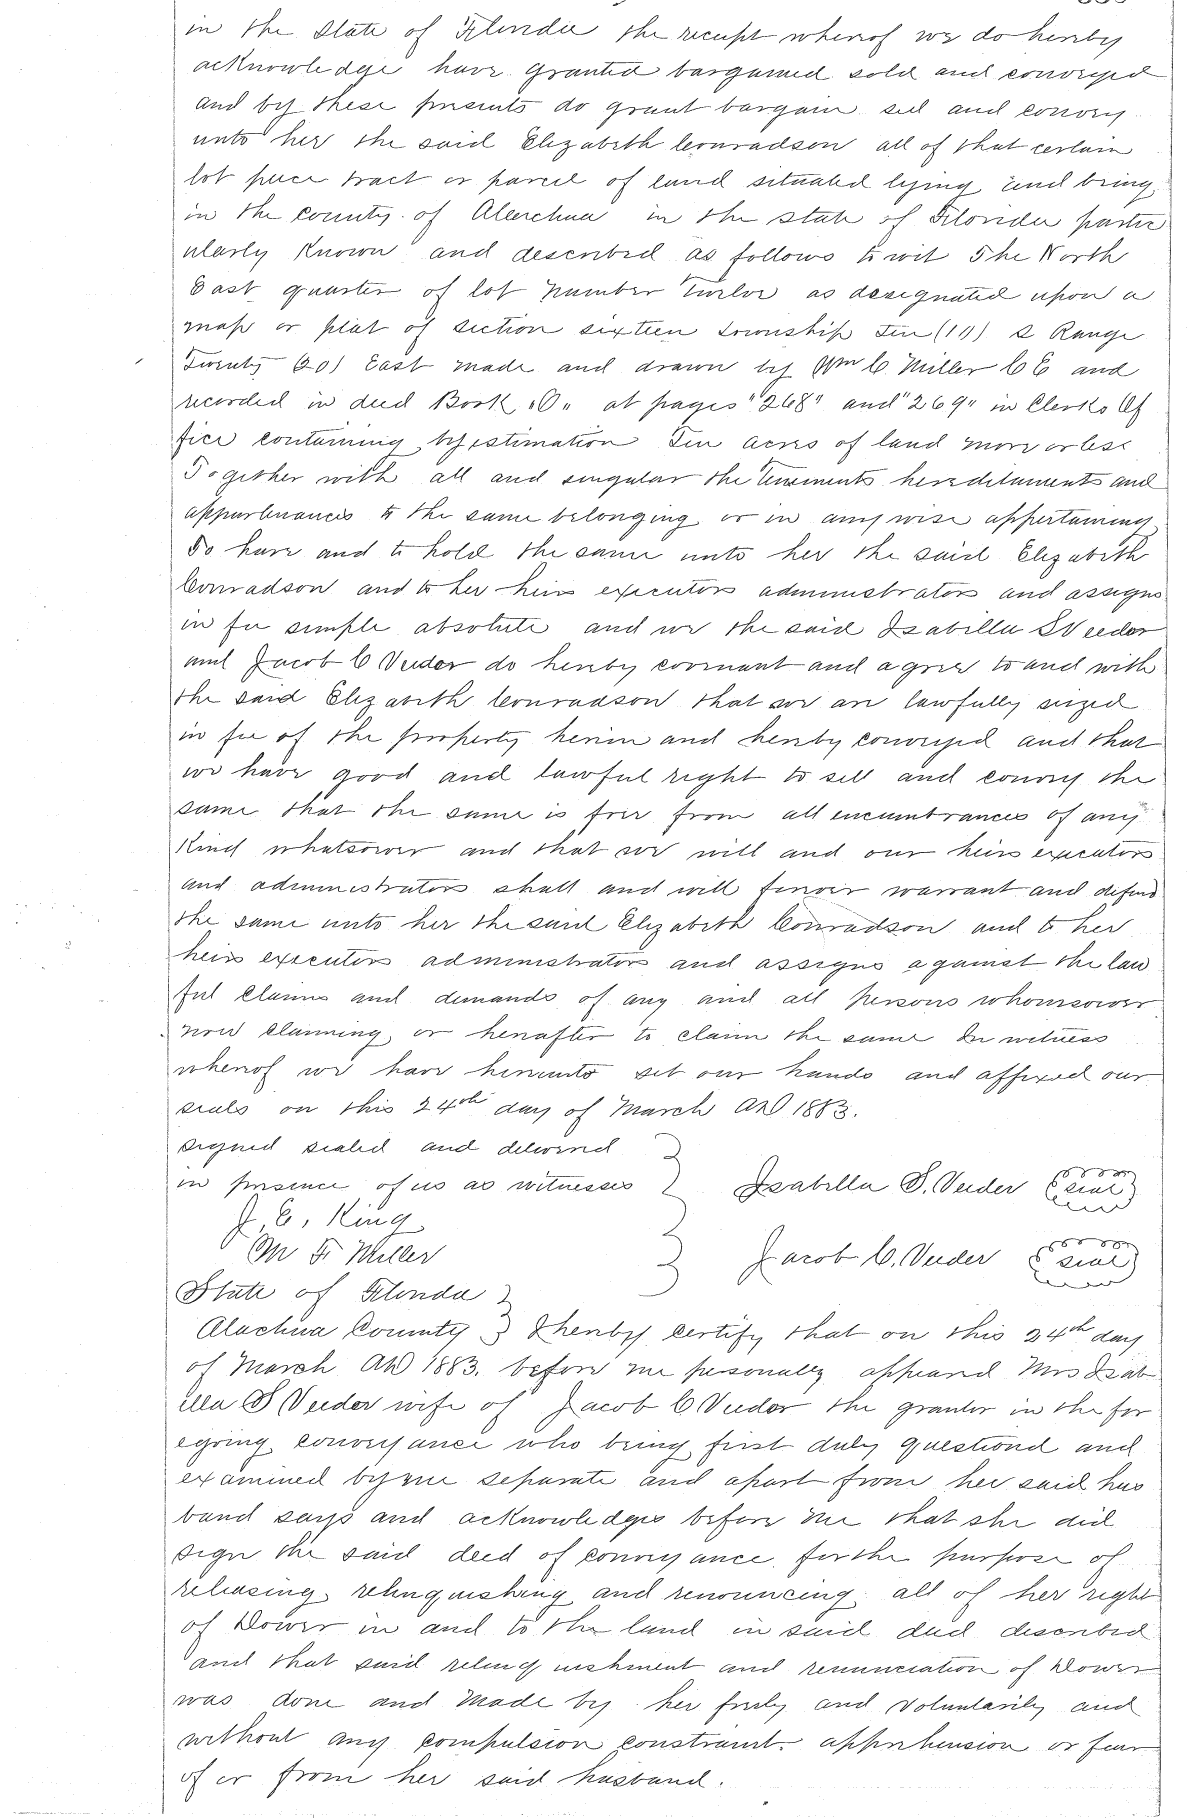 in the State of Florida the receipt whereof we do hereby
acknowledge have granted bargained sold and conveyed
and by these presents do grant bargain sell and convey
unto her the said Elizabeth Conradson all of that certain
lot piece tract or parcel of land situated lying and being
in the county of Alachua in the state of Florida partic
ularly known and described as follows to wit The North
East quarter of lot number Twelve as designated upon a
map or plat of section sixteen township Ten (10) S Range
Twenty 20) East made and drawn by Wm C Miller C E and
recorded in deed Book "O" at pages "268" and "269" in Clerks Of
fice containing by estimation Ten acres of land more or less
Together with all and singular the tenements hereditaments and
appurtenances to the same belonging or in any wise appertaining
To have and to hold the same unto her the said Elizabeth
Conradson and to her heirs executors administrators and assigns
in fee simple absolute and we the said Isabella S Veeder
and Jacob C Veeder do hereby covenant and agree to and with
the said Elizabeth Conradson that we are lawfully seized
in fee of the property herein and hereby conveyed and that
we have good and lawful right to sell and convey the
same that the same is free from all encumbrances of any
Kind whatsoever and that we will and our heirs executors
and administrators shall and will forever warrant and defend
the same unto her the said Elizabeth Conradson and to her
heirs executors administrators and assigns against the law
ful claims and demands of any and all persons whomsoever
now claiming or hereafter to claim the same In witness
whereof we have hereunto set our hands and affixed our
seals on this 24th day of March AD 1883.
signed sealed and delivered
in presence of us as witnesses Isabella S. Veeder seal
J. C. King
M F Miller Jacob C. Veeder seal
State of Florida
Alachua County I hereby certify that on this 24th day
of March AD 1883. before me pesonally appeared Mrs Isab
ella S Veeder wife of Jacob C Veeder the grantor in the for
egoing conveyance who being first duly questiond and
examined by me separate and apart from her said hus
band says and acknowledges before me that she did
sign the said deed of conveyance for the purpose of
releasing relinquishing and renouncing all of her right
of Dower in and to the land in said deed described
and that said relinquishment and renunciation of Dower
was done and made by her freely and Voluntarily and
without any compulsion constraint apprehension or fear
of or from her said husband.